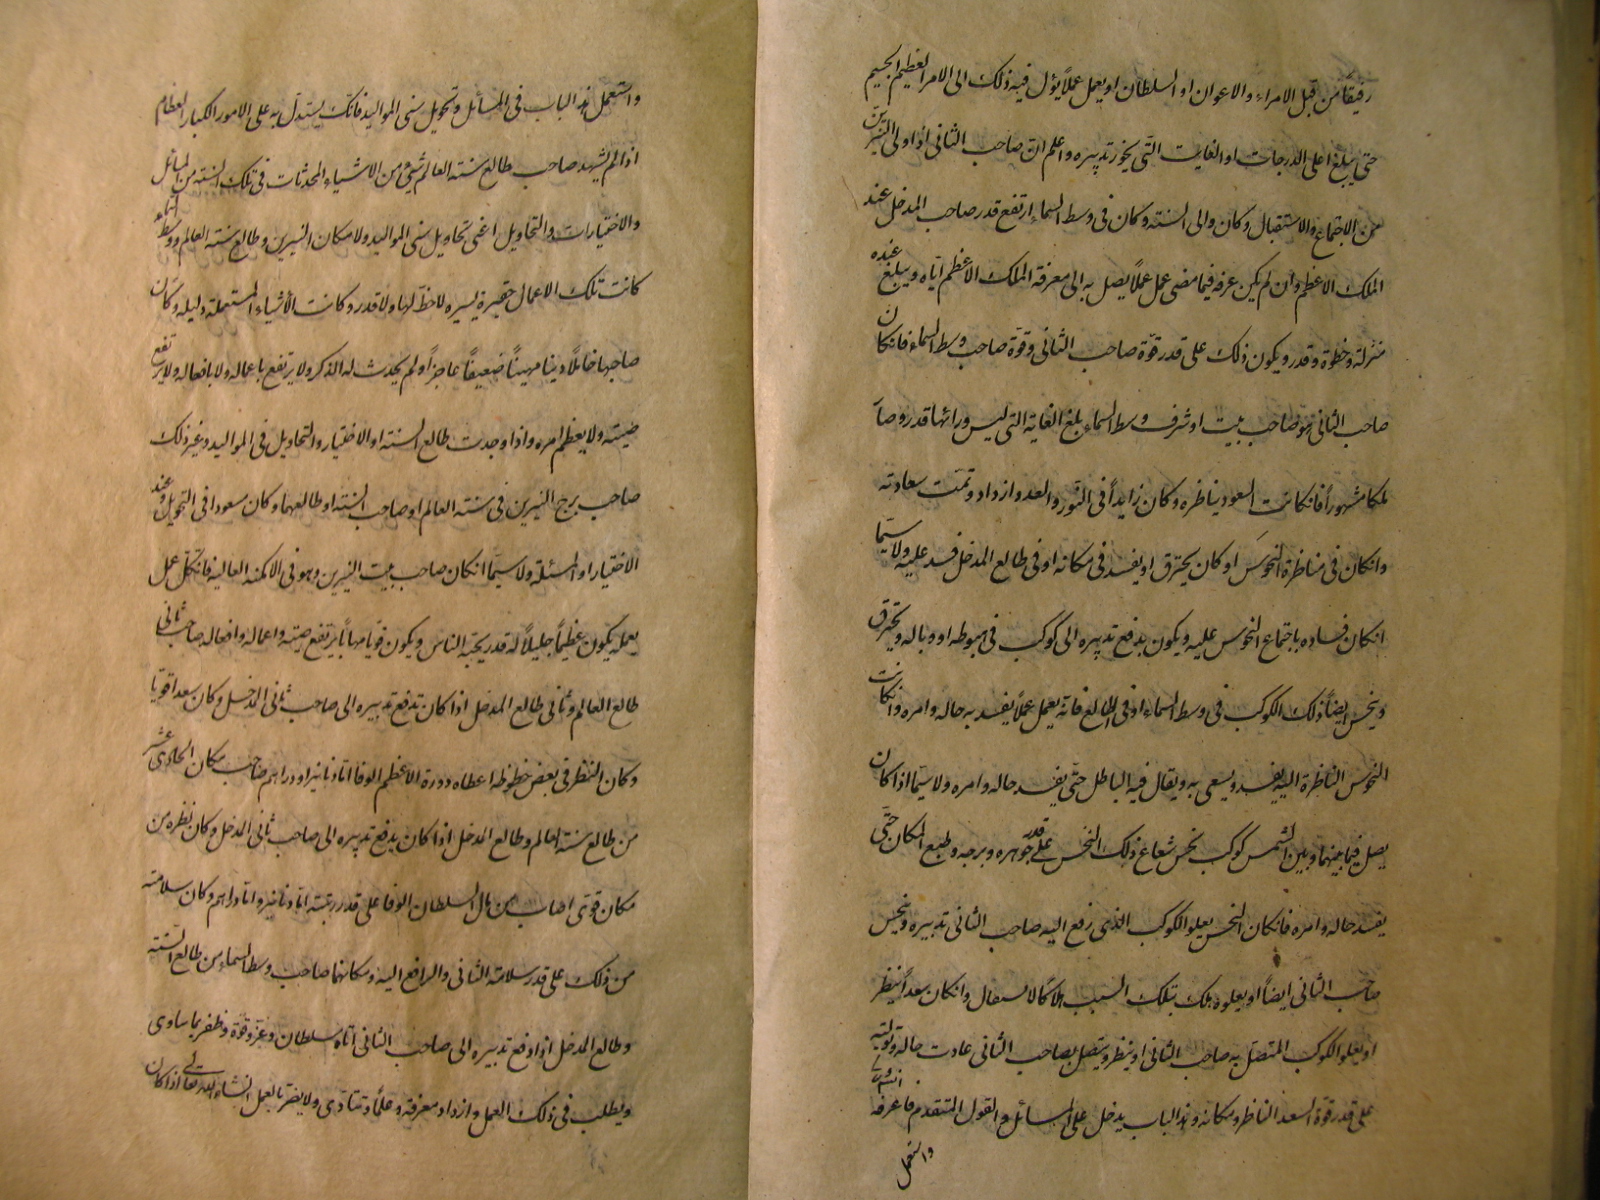 رفيقاً من قبل الامراء والاعوان او السلطان او يعمل عملاً يؤل فيه ذلك الى الامر العظيم الجسيم
حتى يبلغ اعلى الدرجات او الغايت التى يحوز تدبيره واعلم ان صاحب الثانى اذا ولى النيرين
من الاجتماع والاستقبال وكان والى السنة وكان فى وسط السماء ارتفع قدر صاحب المدخل عند
الملك الاعظم وان لم يكن عرفه فيما مضى عمل عملاً يصل به الى معرفة الملك الاعظم اياه ويبلغ عنده
منزلة وحظوة وقدر ويكون ذلك على قدر قوة صاحب الثانى وقوة صاحب وسط السماء فان كان
صاحب الثانى هو صاحب بيت او شرف وسط السماء بلغ الغاية التى ليس ورائها قدر وصار
ملكا مشهوراً فان كانت السعود يناظره وكان زايداً فى النور والعدد وازداد وتمت سعادته
وانكان فى مناظرة النحوس او كان يحترق او يفسد فى مكانه او فى طالع المدخل فسد عليه ولا سيما
انكان فساده باجتماع النحوس عليه ويكون يدفع تدبيره الى كوكب فى هبوطه او وباله ويحترق
وينحس ايضاً ذلك الكوكب فى وسط السماء او فى الطالع فانه يعمل عملاً يفسد به حاله وامره وان كانت
النحوس الناظرة اليه يفسد ويسعى به ويقال فيه الباطل حتى يفسد حاله وامره ولا سيما اذا كان
يصل فيما بينهما وبين الشمس كوكب نحس شعاع ذلك النحس على قدر جوهره وبرجه وطبع المكان حتى
يفسد حاله وامره فانكان النحس يعلو الكوكب الذى رفع اليه صاحب الثانى تدبيره وينحس
صاحب الثانى ايضاً او يعلوه هلك بتلك السبب هلاكا لا وانكان سعداً ينظر
او يعلو الكوكب المتصل به صاحب الثانى او ينظر ويتصل بصاحب الثانى عادت حاله وتوليته
على قدر قوة السعد الناظر ومكانه وهذا الباب يدخل على المسائل والقول المتقدم فاعرفه
واستعمل
واستعمل هذا الباب فى المسائل وتحويل سنى المواليد فانك يستدل به على الامور الكبار العظام
اذا لم يشهد صاحب طالع سنة العالم شئ من الاشياء المحدثات فى تلك السنة من المسائل
والاختيارات والتحاويل اعنى تحاويل سنى المواليد ولا مكان النيرين وطالع سنة العالم ووسط السماء
كانت تلك الاعمال حقيرة يسيره لاحظ لها ولا قدر وكانت الاشياء المستعملة ذليله وكان
صاحبها خاملاً دينا مهيناً ضعيفاً عاجزاً ولم يحدث له الذكر ولا يرتفع باعماله ولا بافعاله ولا يرتفع
صيته ولا يعظم امره واذا وجدت طالع السنة او الاختيار والتحاويل فى المواليد وغير ذلك
صاحب برج النيرين فى سنة العالم او صاحب السنة او طالعهما وكان مسعودا فى التحويل وعند
الاختيار او المسئلة ولا سيما انكان صاحب بيت النيرين وهو فى الامكنة العالية فان كل عمل
يعمله يكون عظيماً جليلاً له قدر يحبه الناس ويكون قويا مهاباً يرتفع صيته واعماله وافعاله صاحب ثانى
طالع العالم وثانى طالع المدخل اذا كان تدفع تدبيره الى صاحب ثانى المدخل وكان سعدا قويا
وكان النظر فى بعض حظوظه اعطاه دورة الاعظم الوفا اما دنانير او دراهم صاحب مكان الحادى عشر
من طالع سنة العالم وطالع المدخل اذا كان يدفع تدبيره الى صاحب ثانى المدخل وكان نظره من
مكان قوى اصاب من مال السلطان الوفا على قدر رتبته اما دنانير واما دراهم وكان سلامته
من ذلك على قدر سلامة الثانى والدافع اليه ومكانهما صاحب وسط السماء من طالع السنة
وطالع المدخل اذا دفع تدبيره الى صاحب الثانى اتاه سلطان وعز وقوة وظفر بما ساوى
ويطلب فى ذلك العمل وازداد معرفة وعلماً وتنادى ولا يضر بالعمل انشاء الله تعالى اذا كان